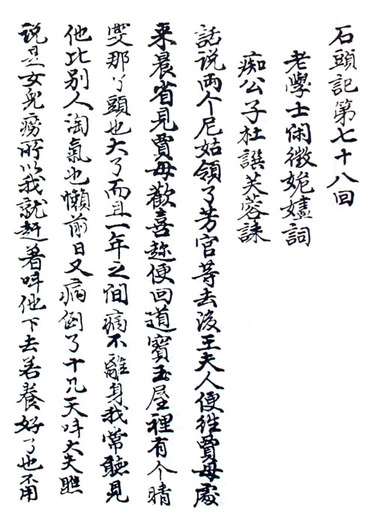 石頭記第七十八回
老學士閑徵姽嫿詞
痴公子杜譔芙蓉誄
話说两个尼姑領了芳官等去後王夫人便徃賈母處
来晨省見賈母歡喜趂便回道寳玉屋裡有个晴
雯那了頭也大了而且一年之间病不離身我常聽見
他比别人淘氣也懶前日又病倒了十几天呌大夫瞧
说是女兒癆所以我就赶着呌他下去若養好了也不用